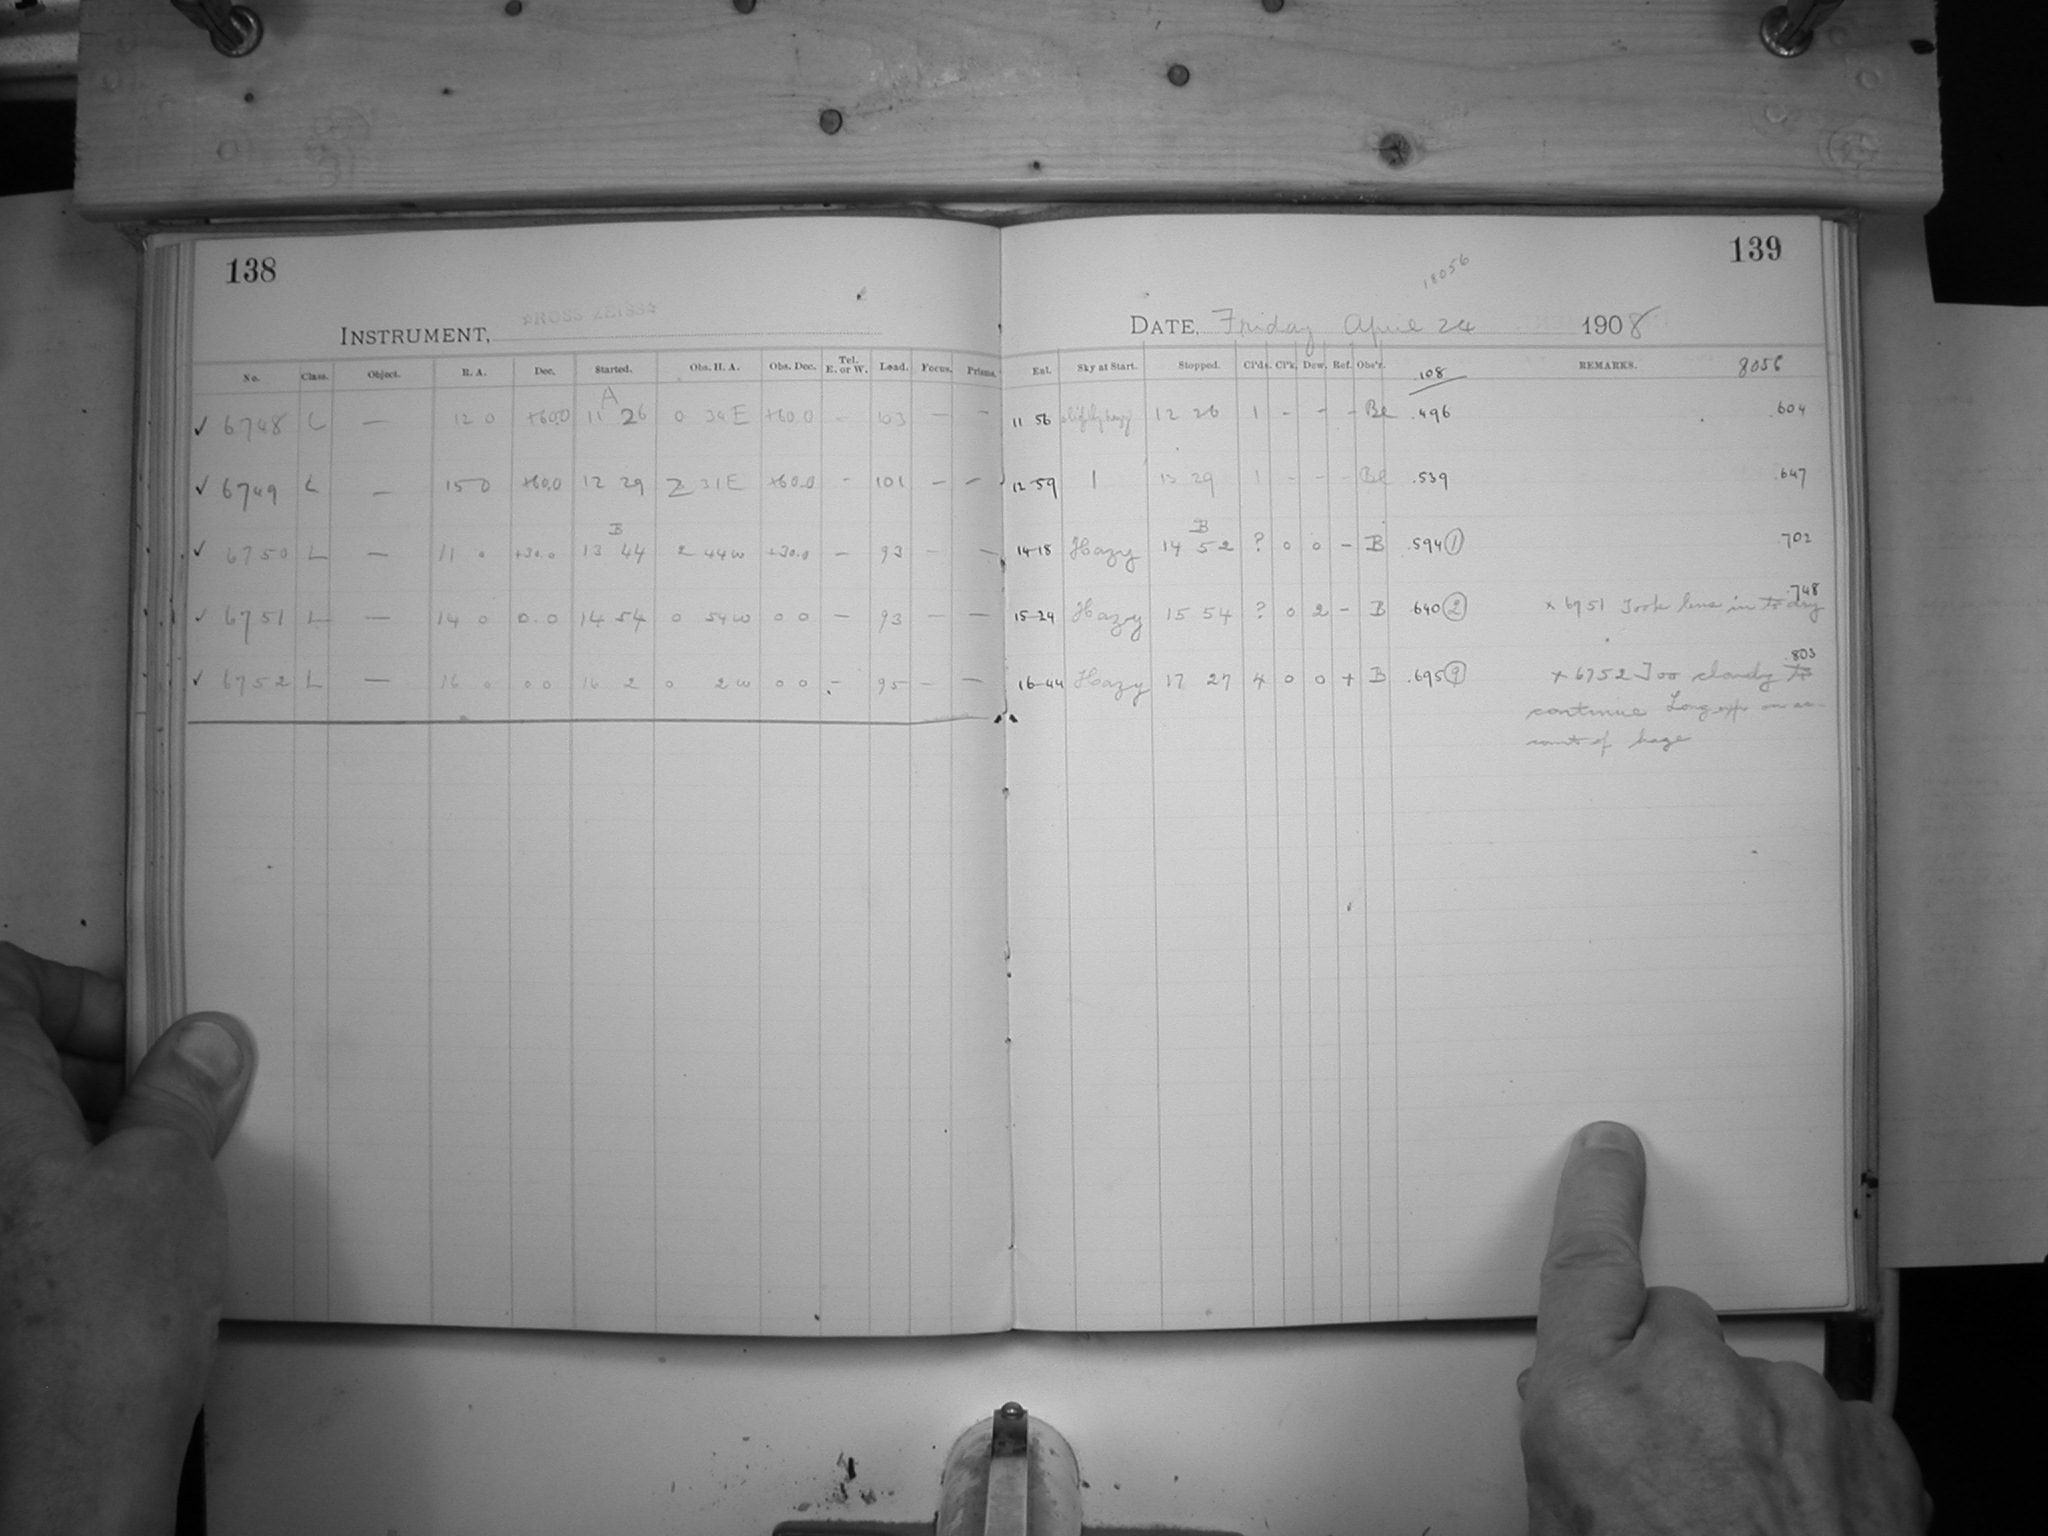 138
INSTRUMENT, ☆ROSS ZEISS☆
No. Class. Object. R. A. Dec. Started. Obs. H. A. Obs. Dec. Tel. E. or W. Load. Focus. Prisms.
A
✓ 6748 L — 12 0 +60.0 11 26 0 34 E +60.0 - 103 — —
✓ 6749 L — 15 0 +60.0 12 29 2 31 E +60.0 - 101 — —
B
✓ 6750 L — 11 0 +30.0 13 44 2 44 w +30.0 — 93 — —
✓ 6751 L — 14 0 0.0 14 54 0 54 w 0 0 — 93 — —
✓ 6752 L — 16 0 0 0 16 2 0 2 w 0 0 - 95 — —
139
18056
DATE, Friday April 24 1908
Ent. Sky at Start. Stopped. Cl'ds. Cl'k. Dew. Ref. Obs'r. .108 REMARKS. 8056
11 56 slightly hazy 12 26 1 - - - Be .496 .604
12 59 1 13 29 1 - - - Be .539 .647
B
14-18 Hazy 14 52 ? 0 0 - B .594 ① .702
.748
15-24 Hazy 15 54 ? 0 2 - B .640 ② x 6751 Took lens in to dry
.803
16-44 Hazy 17 27 4 0 0 + B .695 ⑨ x 6752 Too cloudy to
continue Long exp on ac-
count of haze